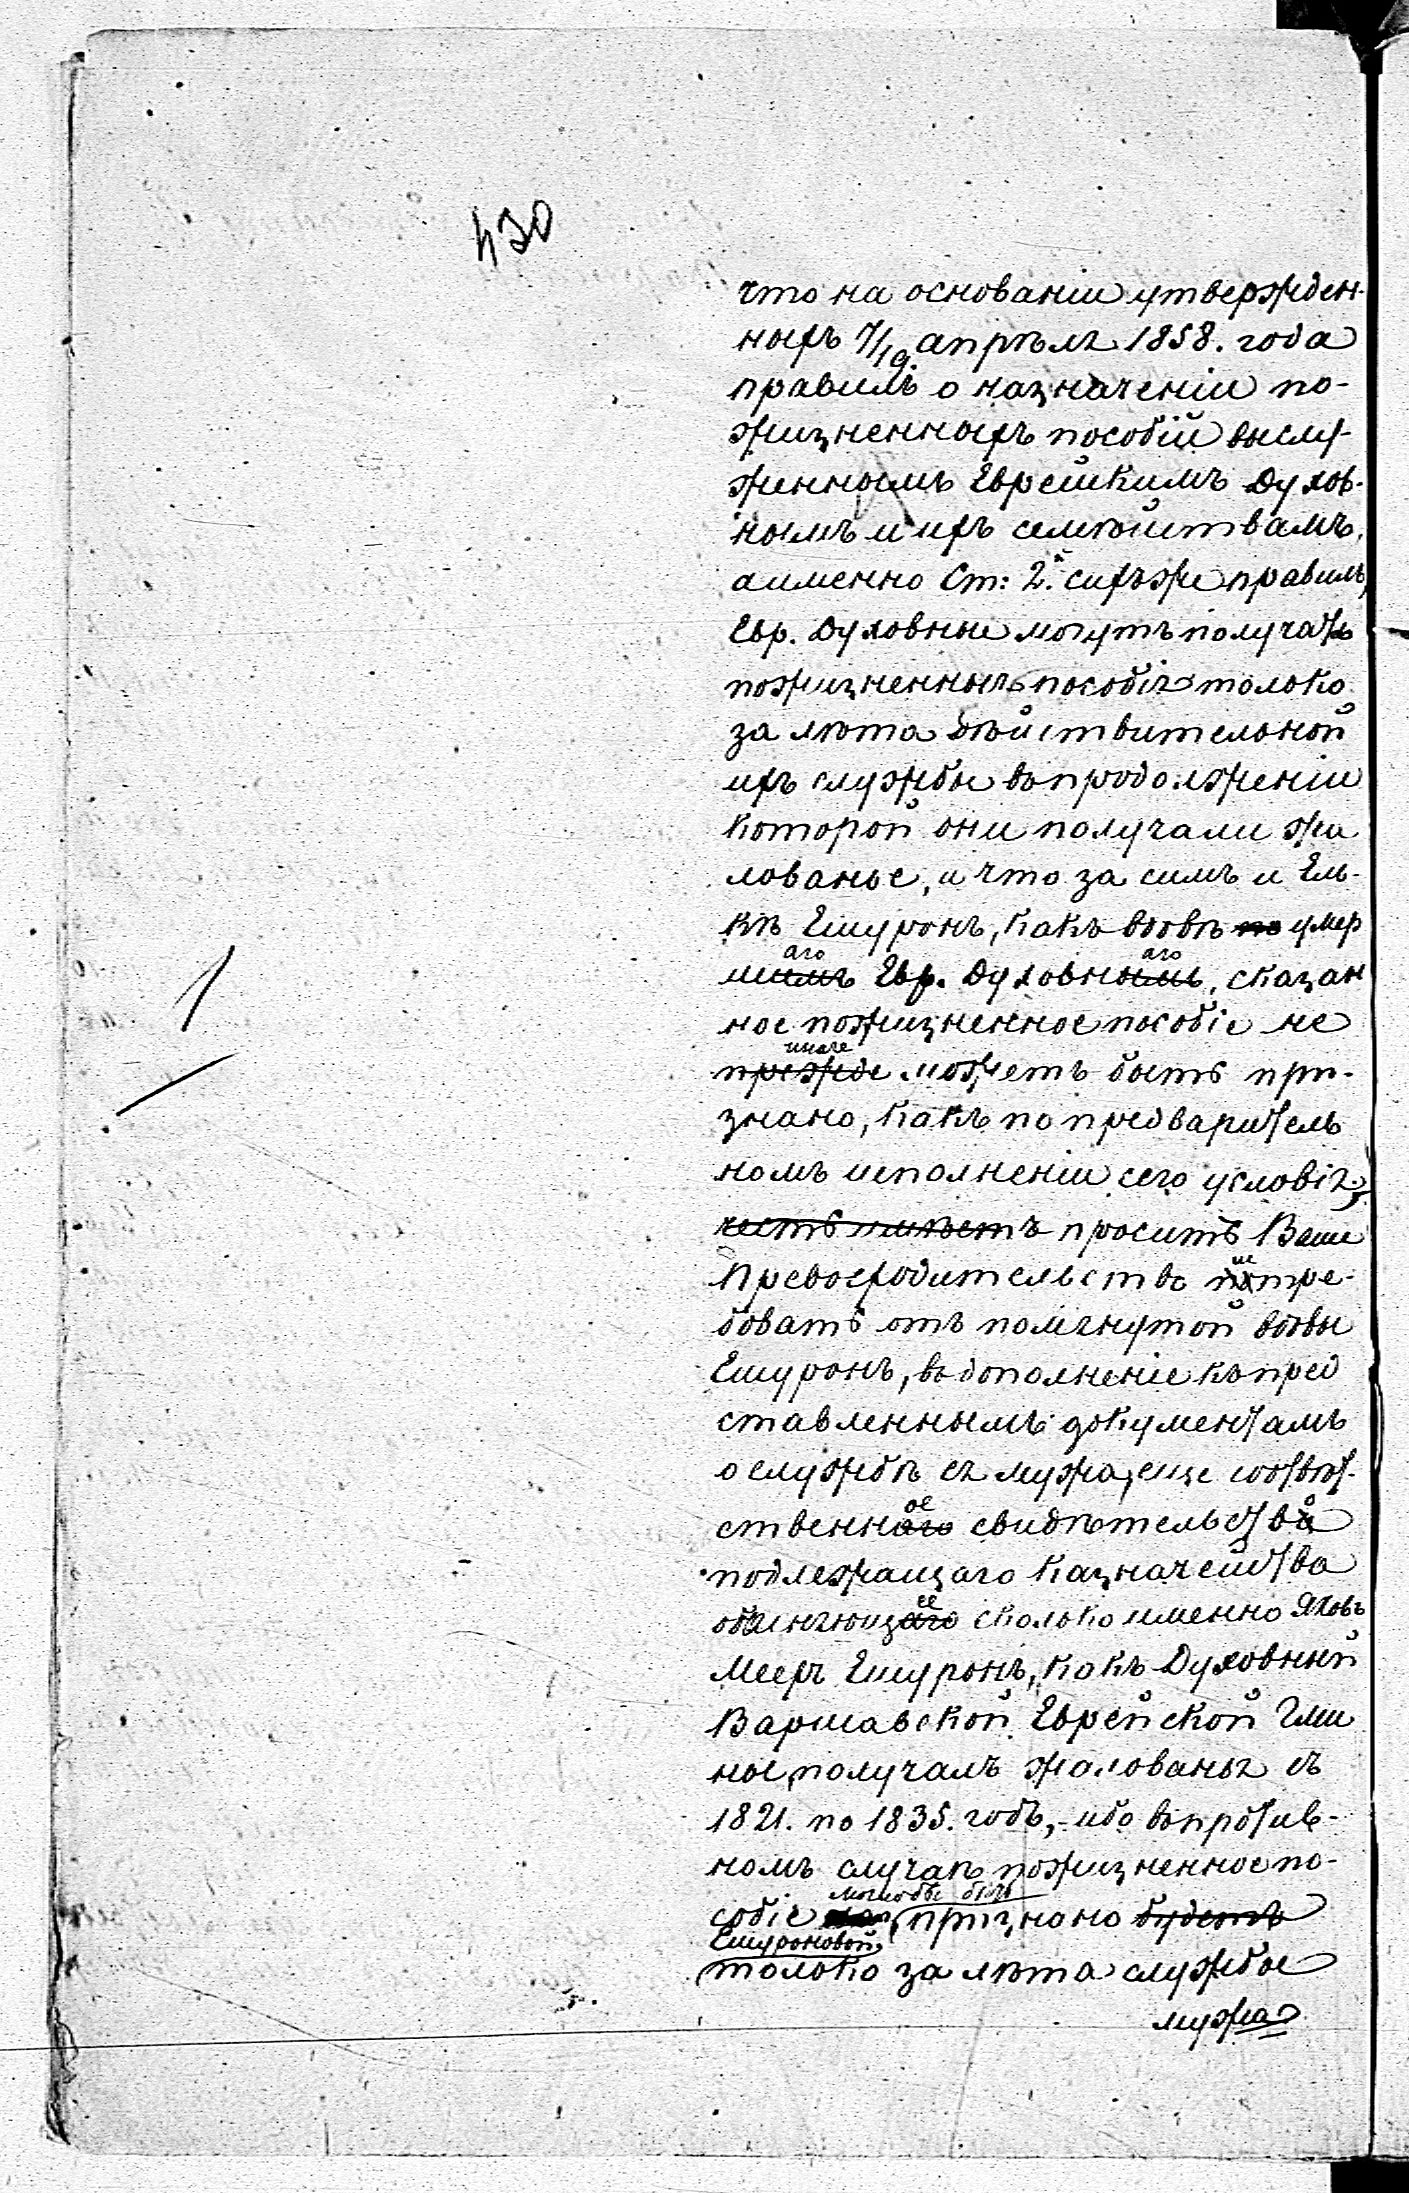 430
что на основаніи утвержден-
ныхъ 7/19. апрѣля 1858. года
правилъ о назначеніи по-
жизненныхъ пособій выслу-
женнымъ Еврейскимъ Духов-
нымъ и ихъ семѣйствамъ,
а именно Ст: 2.й сихъ же правилъ,
Евр. Духовные могутъ получать
пожизненныя пособія только
за лѣта дѣйствительной
ихъ службы въ продолженіи
которой они получали жа
лованье, и что за симъ и Ель-
кѣ Ешуронъ, какъ вдовѣ по умер
аго аго
шимъ Евр. Духовнымъ, сказан
ное пожизненное пособіе не
иначе
прежде можетъ быть при-
знано, какъ по предваритель
номъ исполненіи сего условія,
честь имѣетъ просить Ваше
Превосходительство по тре-
бовать отъ помянутой вдовы
Ешуронъ, въ дополненіе къ пред
ставленнымъ документамъ
о службѣ ея мужа, еще соотвѣт-
ое о
ственнаго свидѣтельства
подлежащаго Казначейства
ее
объясняющаго сколько именно Яковъ
Мееръ Ешуронъ, какъ Духовный
Варшавской Еврейской Гми
ны, получалъ жалованья съ
1821. по 1835. годъ, - ибо въ против-
номъ случаѣ пожизненное по-
могло бы быть
собіе признано будетъ
Ешуроновой
только за лѣта службы
мужа
1